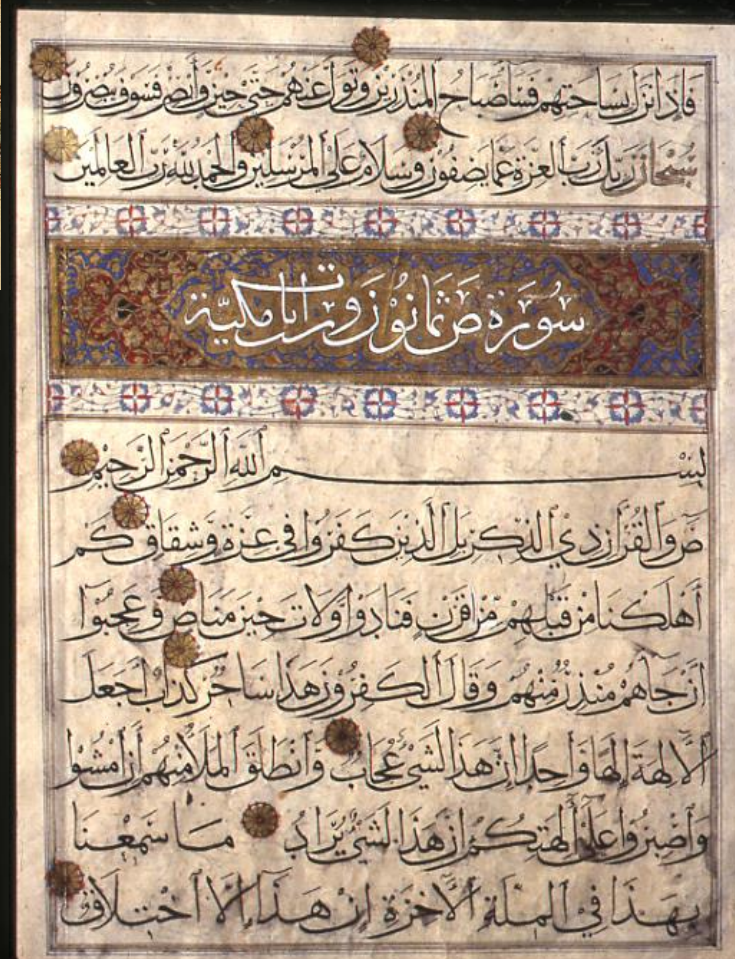 فإذا نزل بساحتهم فساء صباح المنذرين وتول عنهم حتى حين وأبصر فسوف يبصرون
سبحان ربك رب العزة عما يصفون وسلام على المرسلين والحمد لله رب العالمين
سورة ص ثمانون وست آيات مكية
بسم الله الرحمن الرحيم
ص والقرآن ذي الذكر بل الذين كفروا في عزة وشقاق كم
أهلكنا من قبلهم من قرن فنادوا ولات حين مناص وعجبوا
أن جاءهم منذر منهم وقال الكفرون هذا ساحر كذاب أجعل
الآلهة إلها واحدا إن هذا لشيء عجاب وانطلق الملأ منهم أن امشوا
واصبروا على آلهتكم إن هذا لشيء يراد ما سمعنا
بهذا في الملة الآخرة إن هذا إلا اختلاق